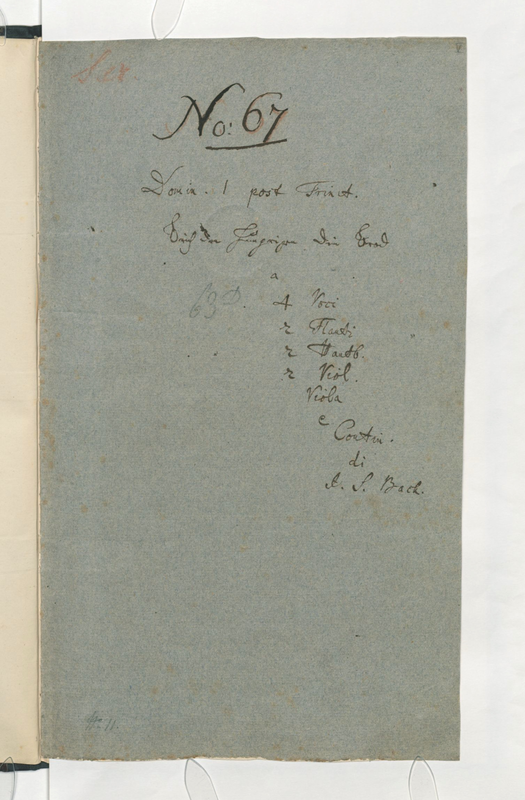 No: 67
Domin. 1 post Trinit.
Brich den Hungrigen Dein Brod
a
63 D. 4 Voci
2 Flauti
2 Hautb.
2 Viol.
Viola
e
Contin.
di
J. S. Bach.